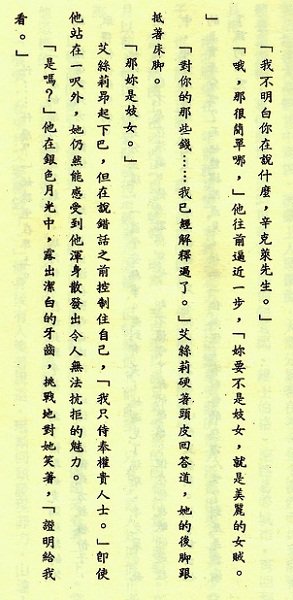 「我不明白你在說什麼，辛克萊先生。」
「哦，那很簡單哪，」他往前逼近一步，「妳要不是妓女，就是美麗的女賊。
」
「對你的那些錢……我已經解釋過了。」艾絲莉硬著頭皮回答道，她的後脚跟
抵著床脚。
「那妳是妓女。」
艾絲莉昂起下巴，但在說錯話之前控制住自己，「我只侍奉權貴人士。」即使
他站在一呎外，她仍然能感受到他渾身散發出令人無法抗拒的魅力。
「是嗎？」他在銀色月光中，露出潔白的牙齒，挑戰地對她笑著，「證明給我
看。」